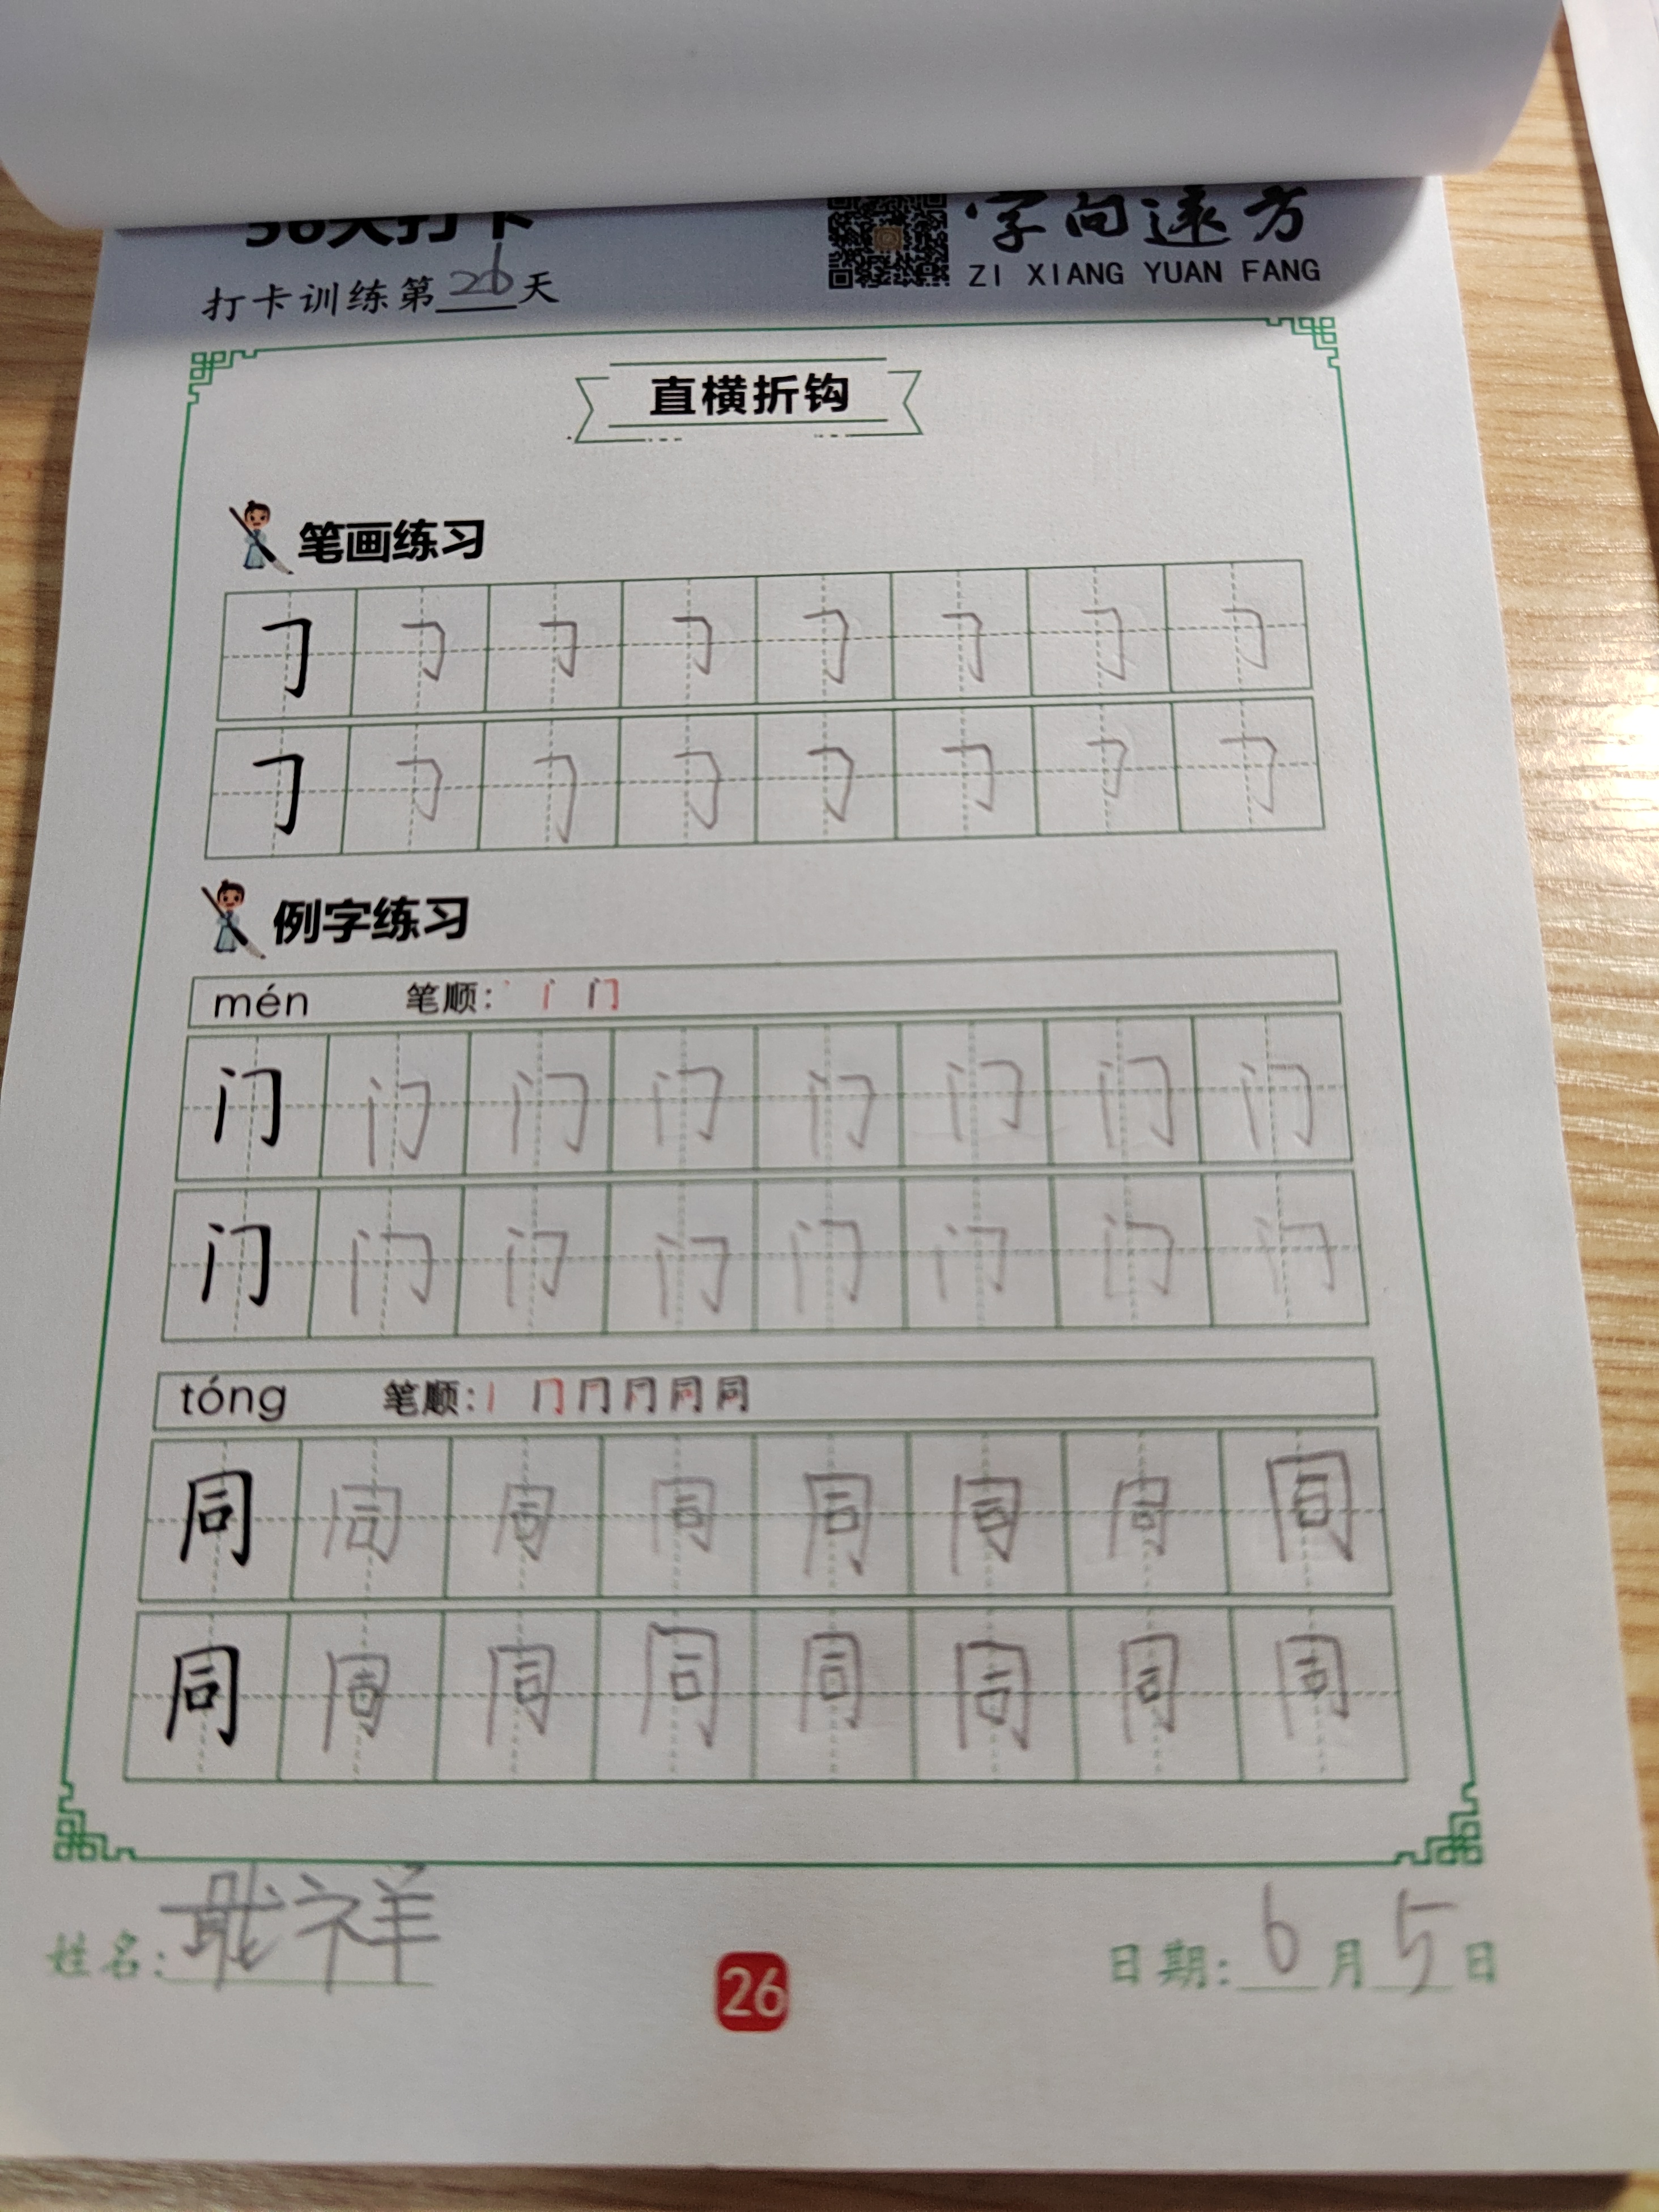 56天打卡
字向远方
ZI XIANG YUAN FANG
打卡训练第26天
直横折钩
笔画练习
𠃌 𠃌 𠃌 𠃌 𠃌 𠃌 𠃌 𠃌
𠃌 𠃌 𠃌 𠃌 𠃌 𠃌 𠃌 𠃌
例字练习
mén 笔顺: 丶 门
门 门 门 门 门 门 门 门
门 门 门 门 门 门 门 门
tóng 笔顺: 丨 冂 同
同 同 同 同 同 同 同 同
同 同 同 同 同 同 同 同
姓名: 祥
26
日期: 6月5日